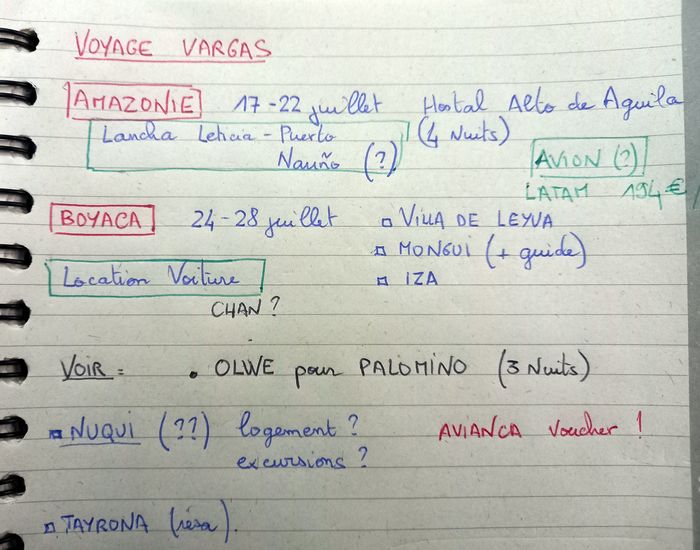 VOYAGE VARGAS
AMAZONIE 17-22 juillet Hostal Alto de Aguila
(4 Nuits)
Lancha Leticia - Puerto
Nariño (?)
AVION (?)
LATAM 194 €
BOYACA 24-28 juillet VILLA DE LEYVA
MONGUI (+ guide)
Location Voiture IZA
CHAN ?
VOIR : • OLWE pour PALOMINO (3 Nuits)
NUQUI (??) logement ? AVIANCA Voucher !
excursions ?
TAYRONA (résa).